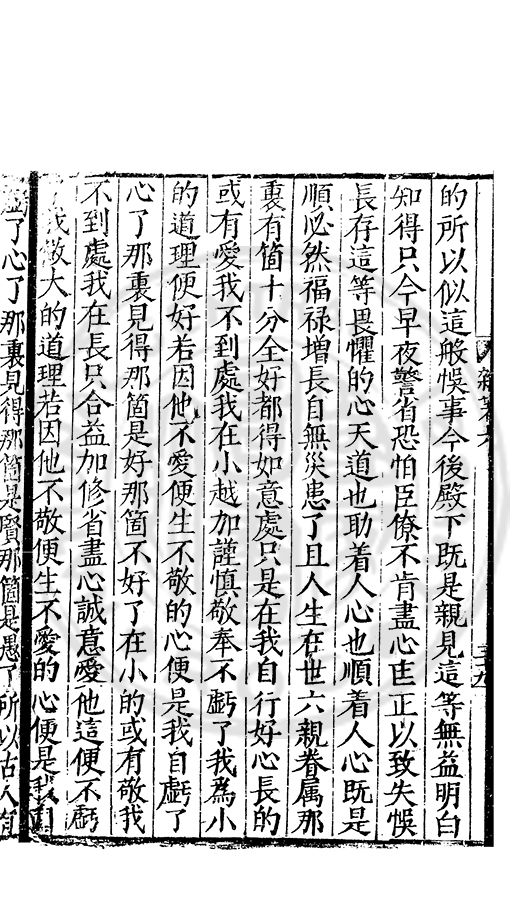 的所以似這般悞事今後殿下既是親見這等無益明白
知得只今早夜警省恐怕臣僚不肯盡心匡正以致失悞
長存這等畏懼的心天道也助着人心也順着人心既是
順必然福禄增長自無災患了且人生在世六親眷属那
裏有箇十分全好都得如意處只是在我自行好心長的
或有愛我不到處我在小越加謹慎敬奉不虧了我為小
的道理便好若因他不愛便生不敬的心便是我自虧了
心了那裏見得那箇是好那箇不好了在小的或有敬我
不到處我在長只合益加修省盡心誠意愛他這便不虧
了我敬大的道理若因他不敬便生不愛的心便是我自
虧了心了那裏見得那箇是賢那箇是愚了所以古人有